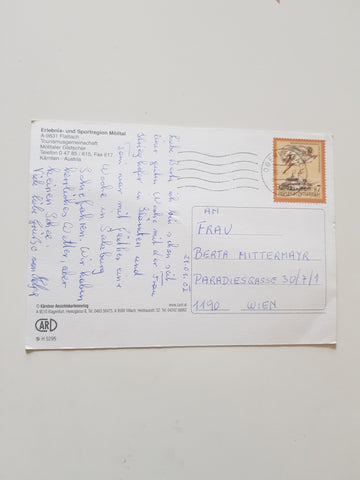 Erlebnis- und Sportregion Mölltal
A-9831 Flattach
Tourismusgemeinschaft
Mölltaler Gletscher
Telefon 0 47 85 / 615, Fax 617
Kärnten - Austria
Liebe Berta, ich bin schon seit
einer guten Woche mit der Frau
in Kärnten und
Tom war mit
Woche in Salzburg
Schifahren. Wir haben
herrliches Wetter, aber
keinen Schnee.
Viele liebe Grüße von
21.01.02
AN
FRAU
BERTA MITTERMAYR
PARADIESGASSE 30/7/1
1190 WIEN
© Kärntner Ansichtkartenverlag
www.card.at
CARD
H 5295